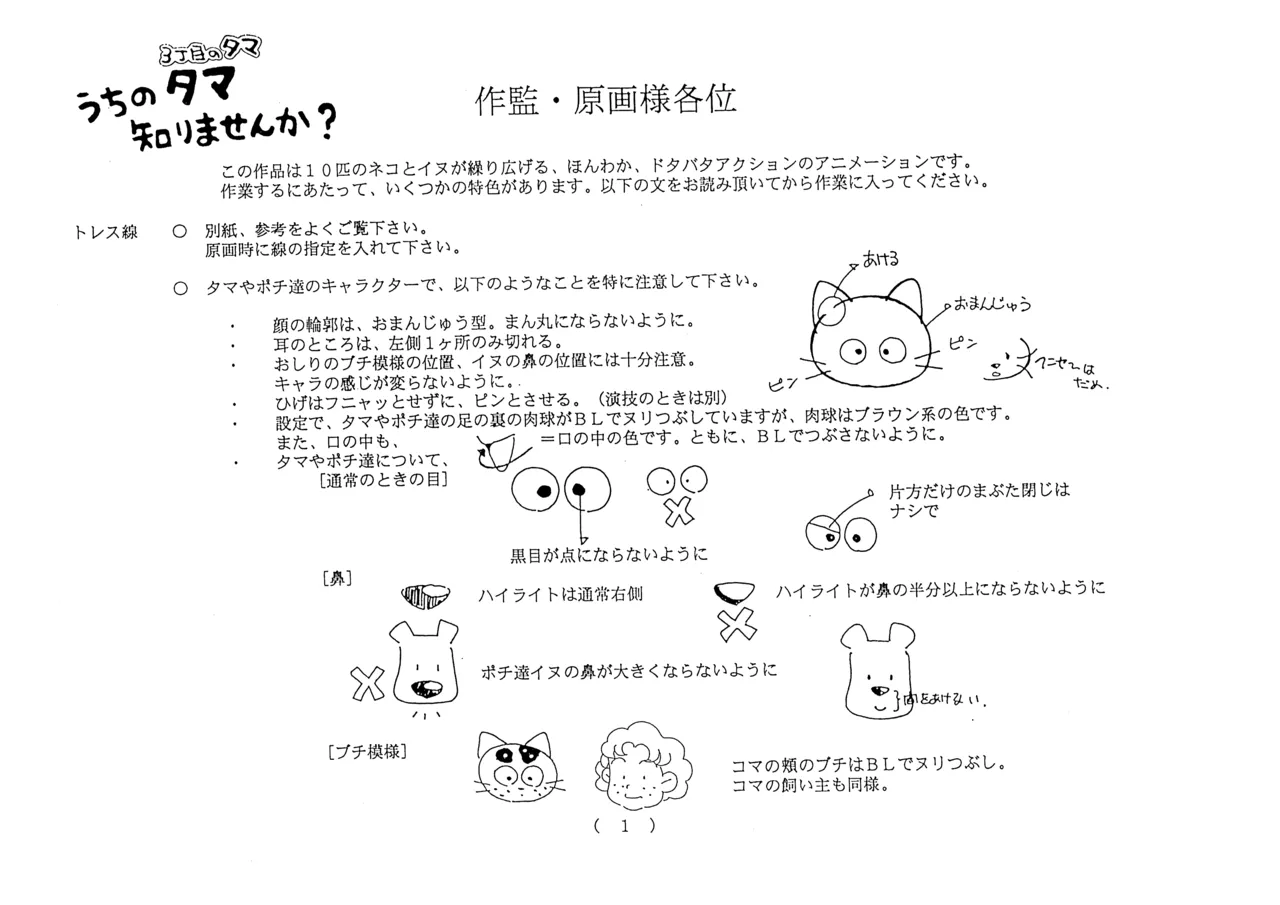 3丁目のタマ
うちのタマ
知りませんか?
作監・原画様各位
この作品は10匹のネコとイヌが繰り広げる、ほんわか、ドタバタアクションのアニメーションです。
作業するにあたって、いくつかの特色があります。以下の文をお読み頂いてから作業に入ってください。
トレス線 ○ 別紙、参考をよくご覧下さい。
原画時に線の指定を入れて下さい。
○ タマやポチ達のキャラクターで、以下のようなことを特に注意して下さい。
・ 顔の輪郭は、おまんじゅう型。まん丸にならないように。
・ 耳のところは、左側1ヶ所のみ切れる。
・ おしりのブチ模様の位置、イヌの鼻の位置には十分注意。
キャラの感じが変らないように。
・ ひげはフニャッとせずに、ピンとさせる。(演技のときは別)
・ 設定で、タマやポチ達の足の裏の肉球がBLでヌリつぶしていますが、肉球はブラウン系の色です。
また、口の中も、 =口の中の色です。ともに、BLでつぶさないように。
・ タマやポチ達について、
[通常のときの目]
あける
おまんじゅう
ピン
ピン
フニャ〜は
だめ.
黒目が点にならないように
片方だけのまぶた閉じは
ナシで
[鼻]
ハイライトは通常右側
ハイライトが鼻の半分以上にならないように
ポチ達イヌの鼻が大きくならないように
間をあけない.
[ブチ模様]
コマの頬のブチはBLでヌリつぶし。
コマの飼い主も同様。
( 1 )